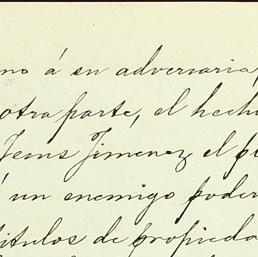 no á su adversaria,
otra parte, el hech
Jesus Jimenez el p
un enemigo poder
titulos de propieda